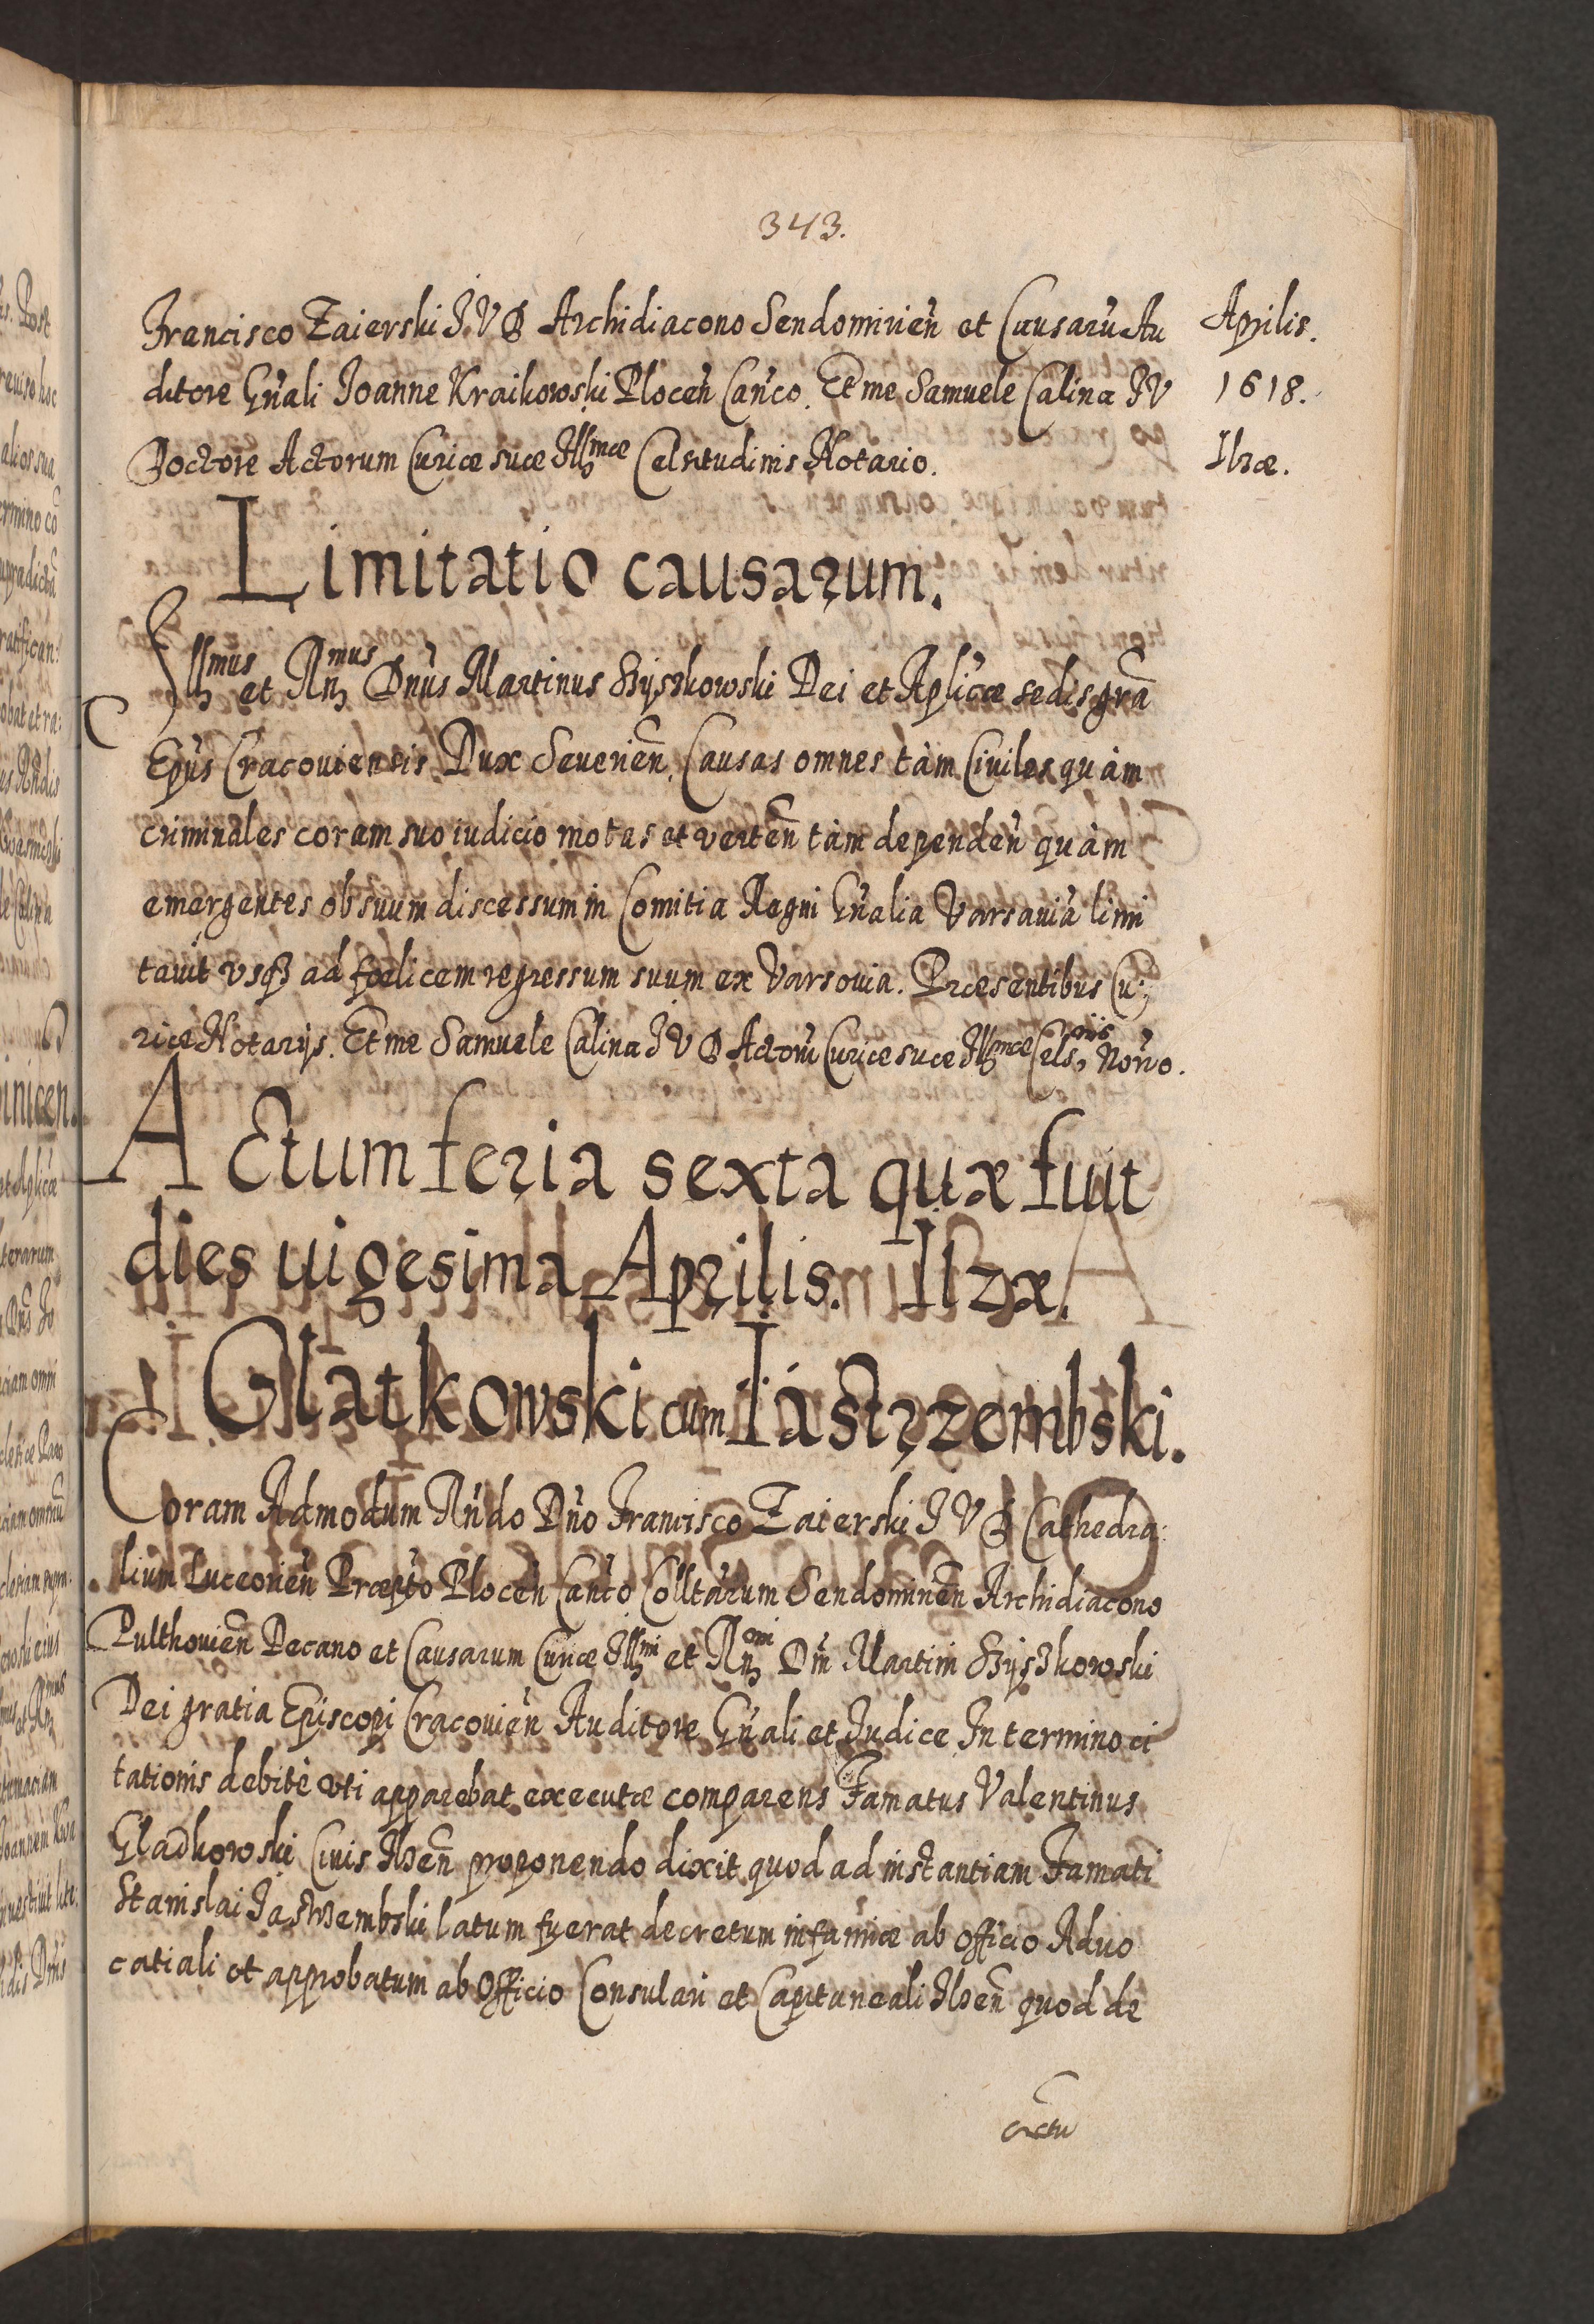 343.
Francisco Zaierski I V D Archidiacono Sendomirień et Causarũ Au
ditore Gñali Joanne Kraikowski Płoceń Cañco. Et me Samuele Calina I V
Doctore Actorum Curiæ suæ Illmæ Celsitudinis Notario.
Aprilis.
1618.
Ilzæ.
Limitatio causarum.
Illmus et Rñmus Dñus Martinus Szyszkowski Dei et Aplicæ sedis grã
Epũs Cracoviensis Dux Severień, Causas omnes tàm Civiles quàm
criminales coram suo iudicio motas et verteñ tàm dependeñ quàm
emergentes ob suum discessum in Comitia Regni Gñalia Varsaviã limi
tavit vsq3 ad fœlicem regressum suum ex Varsovia. Præsentibus Cu:
riæ Notarijs. Et me Samuele Calina I V D Actorũ Curiæ suæ Illmæ Cels: nis Norio.
Actum feria sexta quæ fuit
dies uigesima Aprilis. Ilzæ.
Glatkowski cum Iástrzembski.
Coram Admodum Rñdo Dño Francisco Zaierski I V D Cathedra:
lium Luceorień Præpto Płoceń Cañco Colltarum Sendomireñ Archidiacono
Pulthovień Decano et Causarum Curiæ Illmi et Rñmi Dñi Martini Szyszkowski
Dei gratia Episcopi Cracovień Auditore Gñali et Judice In termino ci
tationis debitè vti apparebat executæ comparens Famatus Valentinus
Gladkowski Civis Ilzeñ proponendo dixit quod ad instantiam Famati
Stanislai Jastrzembski latum fuerat decretum infamiæ ab officio Advo
catiali et approbatum ab Officio Consulari et Capitaneali Ilzeñ quod de
cretu